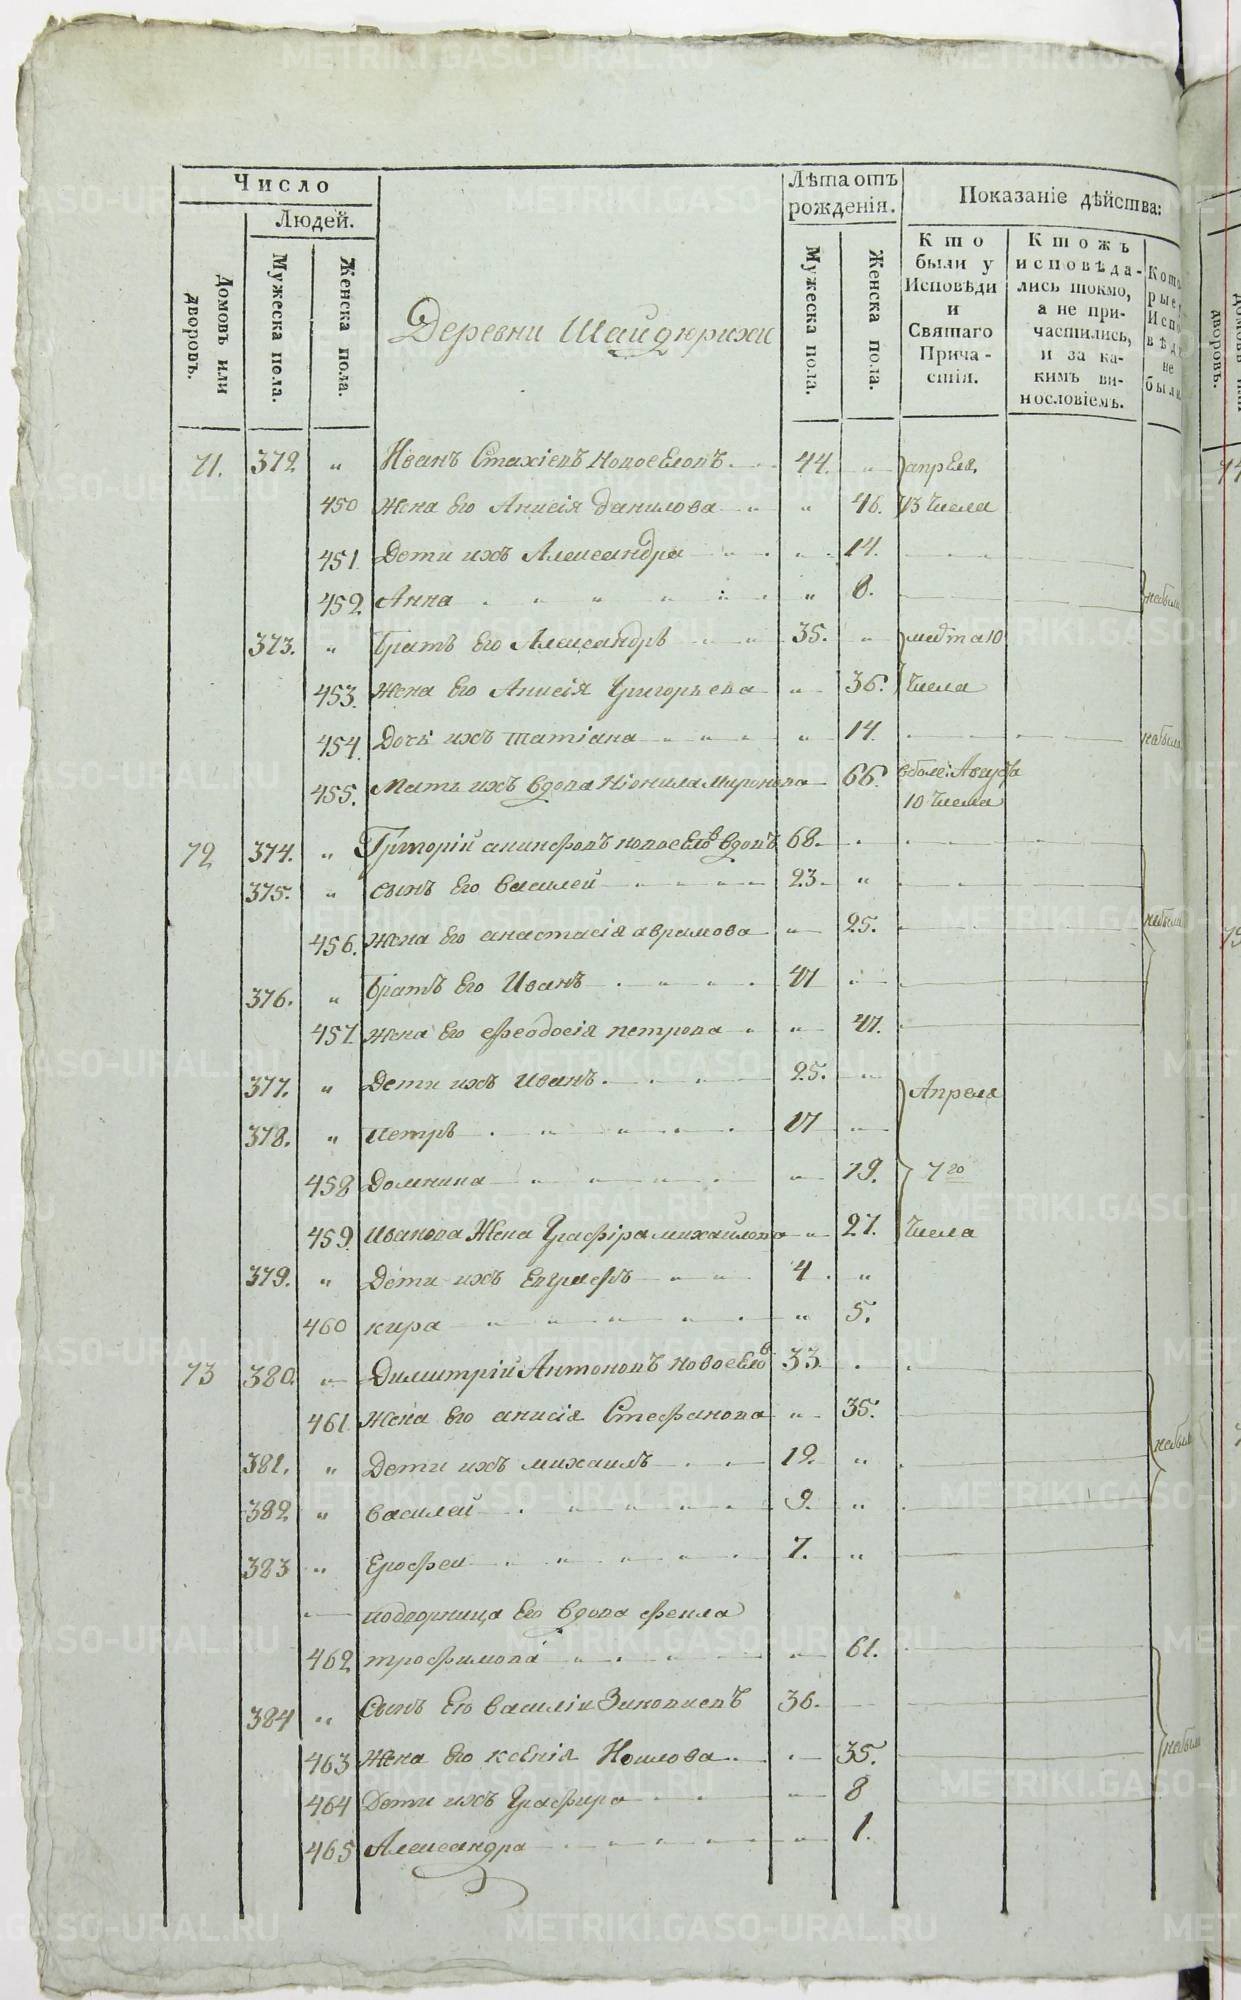 Число
Людей.
Домовъ или дворовъ.
Мужеска пола.
Женска пола.
Лѣта отъ рожденія.
Мужеска пола.
Женска пола.
Показаніе дѣйства:
Кто были у Исповѣди и Святаго Причастія.
Ктожъ исповѣдались токмо, а не причастились, и за какимъ винословіемъ.
Деревни Шайдурихи
71. 372 „ Иванъ Стахіевъ Новоселовъ 44. „ апреля
450 жена Его Анисія Данилова „ 46. 13 числа
451 Дети ихъ Александра „ 14.
452 Анна „ 8. небыли
373. „ Братъ Его Александръ 35. „ марта 10
453. жена Его Анисія Григорьева „ 36. числа
454 Дочь ихъ татіана „ 14. небыла
455. Мать ихъ вдова Неонила Миронова 66. Августа
10 числа
72 374. „ Григорій новоселовъ вдовъ 68.
375. „ сынъ Его василей 23. „
456. жена Его анастасія аврамова „ 25. небыли
376. „ братъ Его Иванъ 47
457 жена Его феодосія петрова „ 47.
377. „ Дети ихъ иванъ 25. „ Апреля
378. „ петръ 17
458 Домнина „ 19. 7го
459. иванова жена Глафіра михайлова „ 27. числа
379. „ Дети ихъ Евграфъ 4. „
460 кира „ 5.
73 380. „ Димитрій Антоновъ новоселовъ 33.
461 жена Его анисія Стефанова „ 35.
381. „ Дети ихъ михаилъ 12. „ небыли
382 „ василей 9. „
383 „ Ерофеи 7. „
подворница Его вдова фекла
462 трофимова „ 61.
384 „ Сынъ Ея василіи Зиновиевъ 36.
463 жена Его ксенія „ 35. небыли
464 Дети ихъ Глафира „ 8
465 Александра „ 1.
METRIKI.GASO-URAL.RU